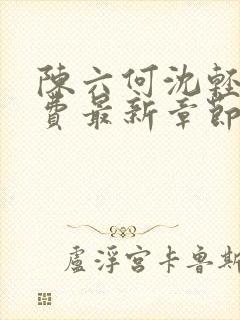 陳六何沈輕
費最新章節
盧浮宮卡魯斯